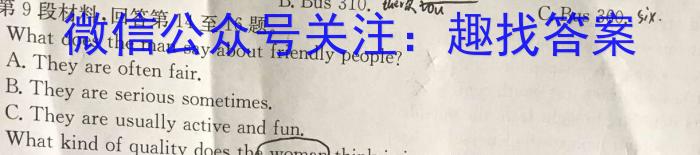 B. Bus 310. there you C. Bus 300. six.
第 9 段材料,回答第 14 至 16 题
What does the man say about friendly people?
微信公众号关注：趣找答案
A. They are often fair.
B. They are serious sometimes.
C. They are usually active and fun.
What kind of quality does the woman